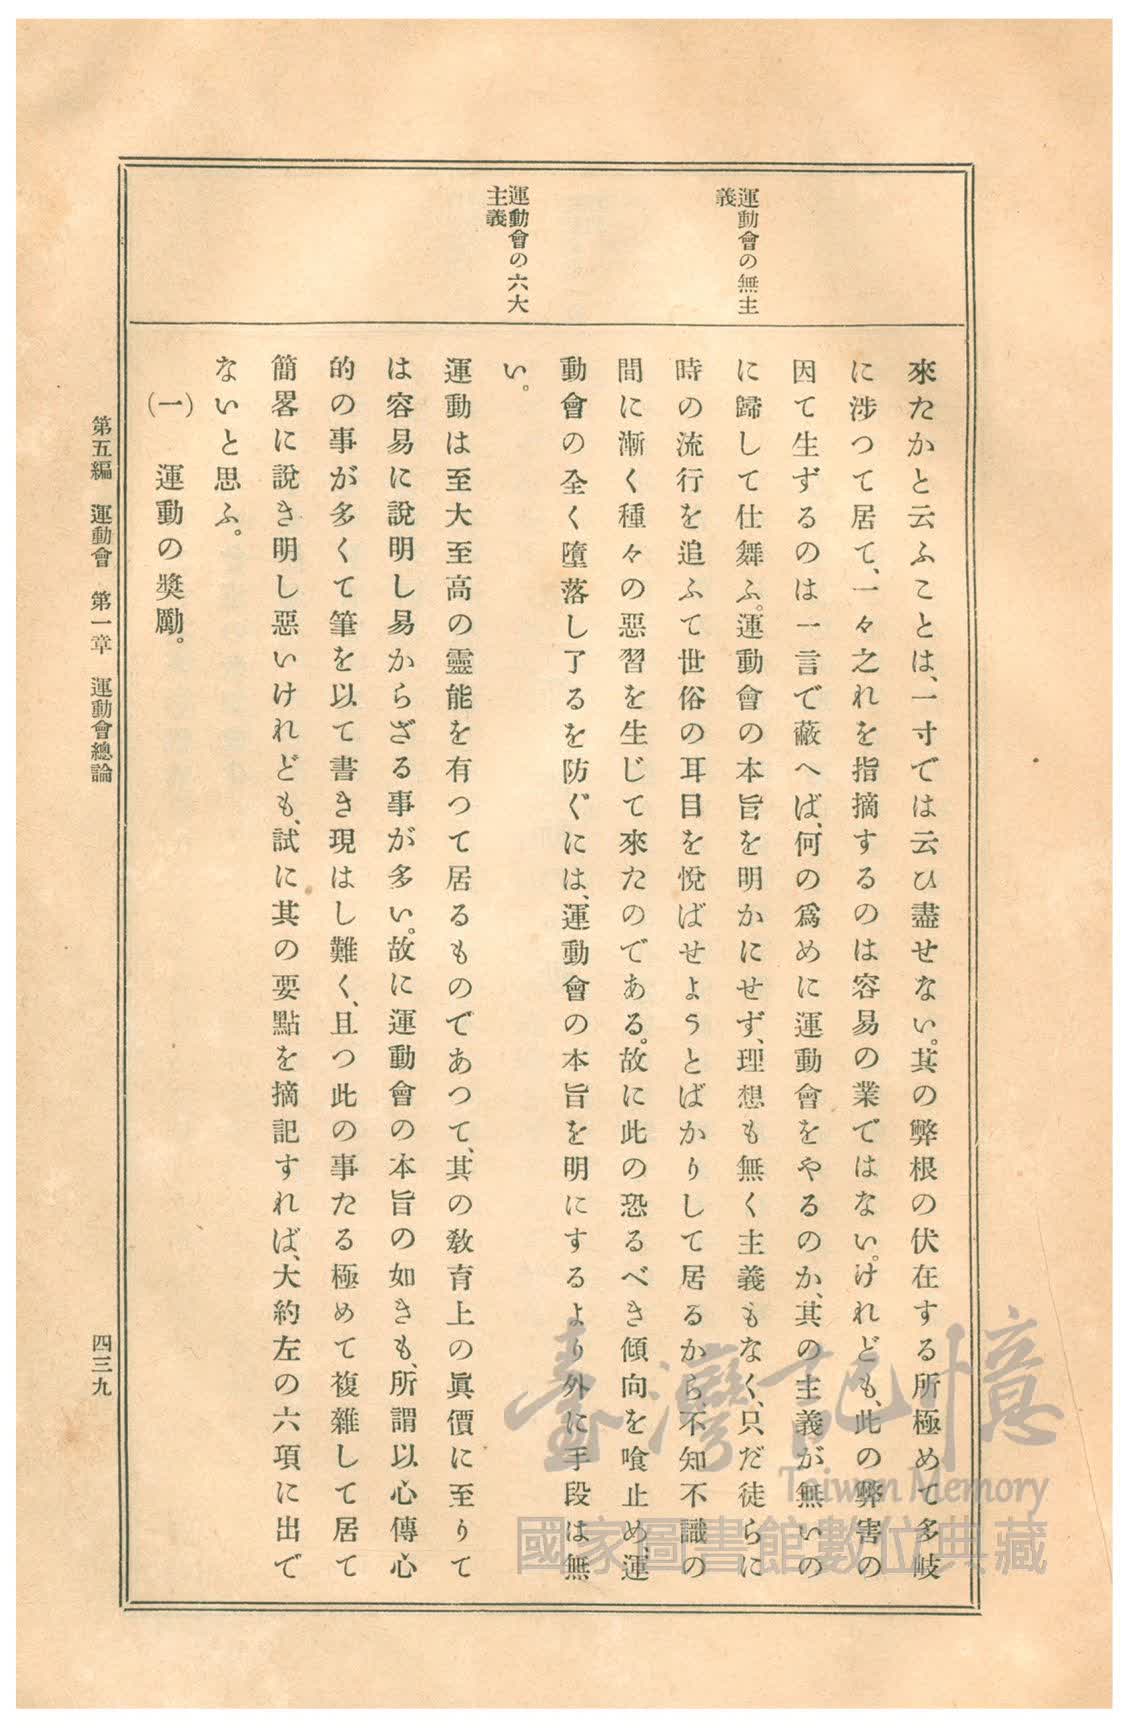 運動會の無主
義
運動會の六大
主義
來たかと云ふことは、一寸では云ひ盡せない。其の弊根の伏在する所極めて多岐
に涉つて居て、一々之れを指摘するのは容易の業ではない。けれども、此の弊害の
因て生ずるのは一言で蔽へば、何の爲めに運動會をやるのか、其の主義が無いの
に歸して仕舞ふ。運動會の本旨を明かにせず、理想も無く主義もなく、只だ徒らに
時の流行を追ふて世俗の耳目を悅ばせようとばかりして居るから、不知不識の
間に漸く種々の惡習を生じて來たのである。故に此の恐るべき傾向を喰止め、運
動會の全く墮落し了るを防ぐには、運動會の本旨を明にするより外に手段は無
い。
運動は至大至高の靈能を有つて居るものであつて、其の敎育上の眞價に至りて
は容易に說明し易からざる事が多い。故に運動會の本旨の如きも、所謂以心傳心
的の事が多くて筆を以て書き現はし難く、且つ此の事たる極めて複雜して居て
簡畧に說き明し惡いけれども、試に其の要點を摘記すれば、大約左の六項に出で
ないと思ふ。
(一) 運動の奬勵。
第五編 運動會 第一章 運動會總論
四三九
臺灣記憶
Taiwan Memory
國家圖書館數位典藏